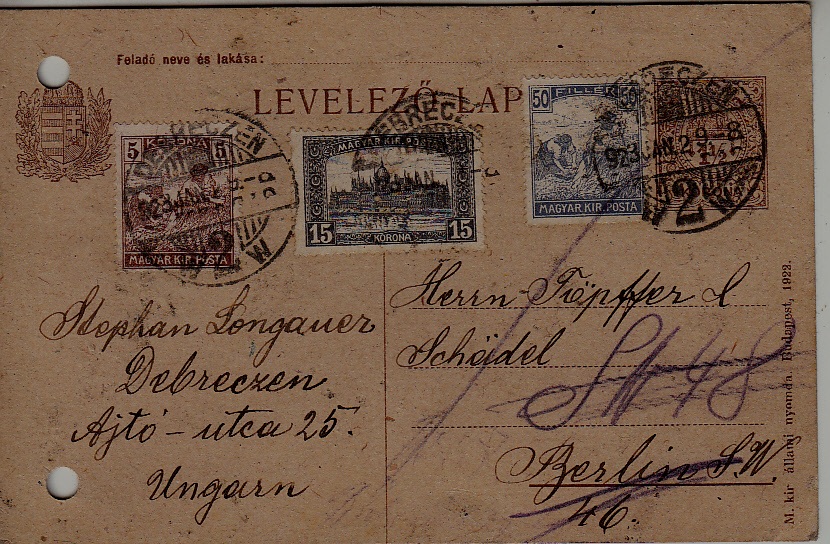 Feladó neve és lakása:
LEVELEZŐ-LAP
5 KORONA 5
MAGYAR KIR. POSTA
DEBRECZEN
MAGYAR KIR. POSTA
15 KORONA 15
DEBRECZEN
50 FILLER 50
MAGYAR KIR. POSTA
DEBRECZEN
923 JAN. 29-8
2
Stephan Longauer
Debreczen
Ajtó-utca 25.
Ungarn
Herrn Töpffer &
Schädel
SW 48
Berlin S.W.
46.
M. kir. állami nyomda. Budapest, 1922.